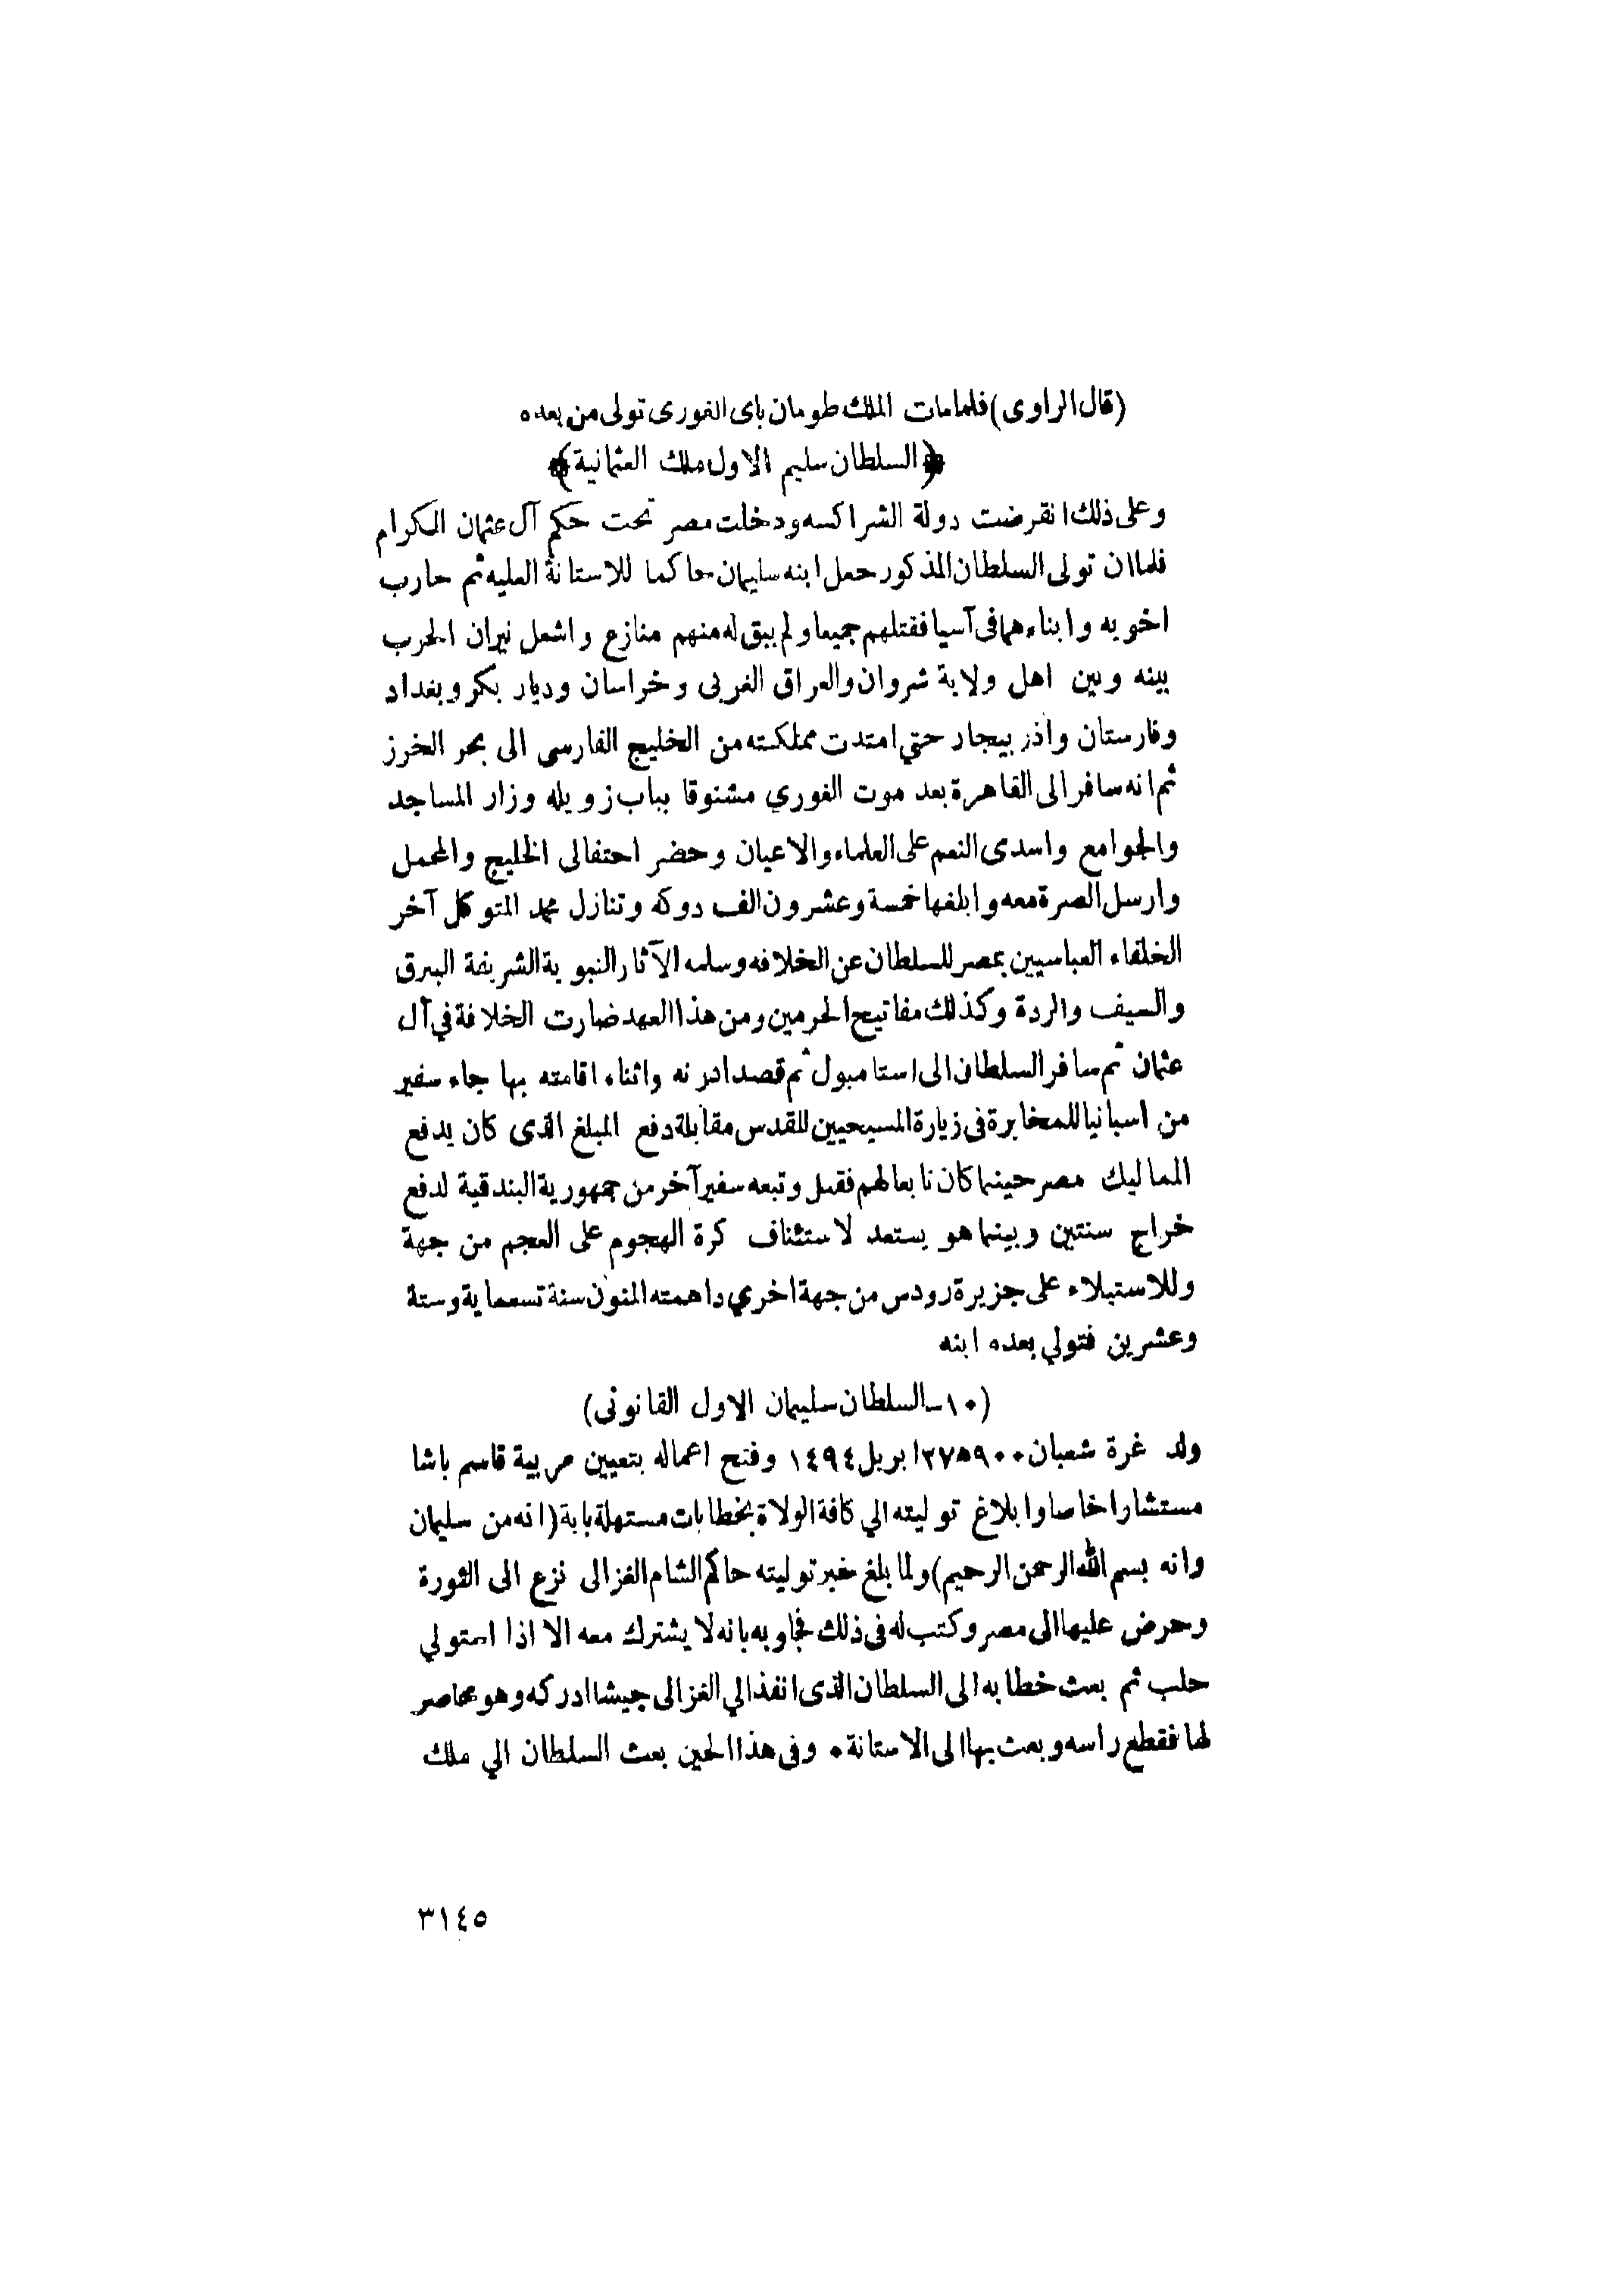 (قال الراوى) فلما مات الملك طومان باى الغورى تولى من بعده
﴿السلطان سليم الاول ملك العثمانية﴾
وعلى ذلك انقرضت دولة الشراكسه ودخلت مصر تحت حكم آل عثمان الكرام
فلما ان تولى السلطان المذكور جعل ابنه سليمان حاكما للاستانة العليه ثم حارب
اخويه وابناءهما فى آسيا فقتلهم جميعا ولم يبق له منهم منازع واشعل نيران الحرب
بينه وبين اهل ولاية شروان والعراق الغربى وخراسان وديار بكر وبغداد
وفارستان واذربيجاد حتي امتدت مملكته من الخليج الفارسى الى بحر الخرز
ثم انه سافر الى القاهرة بعد موت الغوري مشنوقا بباب زويله وزار المساجد
والجوامع واسدى النعم على العلماء والاعيان وحضر احتفالى الخليج والمحمل
وارسل الصرة معه وابلغها خمسة وعشرون الف دوكه وتنازل محمد المتوكل آخر
الخلفاء العباسيين بمصر للسلطان عن الخلافه وسلمه الآثار النبوية الشريفة البيرق
والسيف والردة وكذلك مفاتيح الحرمين ومن هذا العهد ضارت الخلافة في آل
عثمان ثم سافر السلطان الى استامبول ثم قصد ادرنه واثناء اقامته بها جاء سفير
من اسبانيا للمخابرة فى زيارة المسيحيين للقدس مقابلة دفع المبلغ الذى كان يدفع
المماليك مصر حينما كان تابعا لهم فقبل وتبعه سفير آخر من جمهورية البندقية لدفع
خراج سنتين وبينما هو يستعد لاستئناف كرة الهجوم على العجم من جهة
وللاستيلاء على جزيرة رودس من جهة اخري داهمته المنون سنة تسعماية وستة
وعشرين فتولي بعده ابنه
(١٠ـ السلطان سليمان الاول القانونى)
ولد غرة شعبان ٩٠٠ ه ٢٧ ابريل ١٤٩٤ وفتح اعماله بتعيين مربيه قاسم باشا
مستشارا خاصا وابلاغ توليته الي كافة الولاة بخطابات مستهلة باية (انه من سليمان
وانه بسم الله الرحمن الرحيم) ولما بلغ خبر توليته حاكم الشام الغزالى نزع الى الثورة
وحرض عليها الى مصر وكتب له فى ذلك فجاوبه بانه لا يشترك معه الا اذا استولي
حلب ثم بعث خطابه الى السلطان الذى انفذ الي الغزالى جيشا ادركه وهو محاصر
لها فقطع راسه وبعث بها الى الاستانة • وفى هذا الحين بعث السلطان الي ملك
٣١٤٥